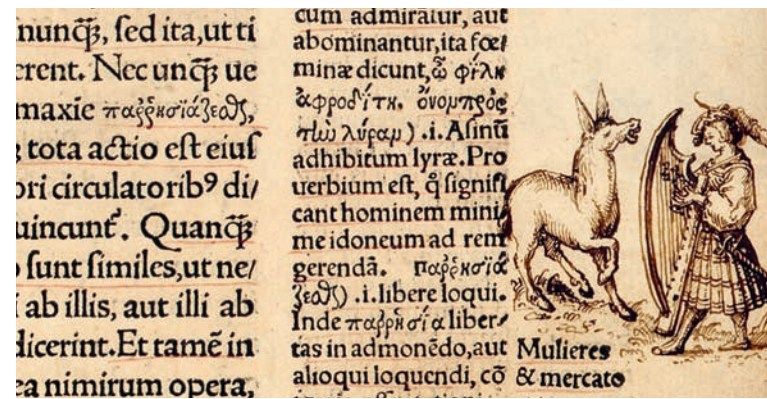 nunq̃ꝫ, sed ita, ut ti
erent. Nec unq̃ꝫ ue
maxie παῤῥησϊάζεσθς,
tota actio est eius
ori circulatorib⁹ di/
uincunt᷑. Quanq̃ꝫ
sunt similes, ut ne/
ab illis, aut illi ab
dicerint. Et tamẽ in
ea nimirum opera,
cum admiratur, aut
abominantur, ita fœ/
minæ dicunt, ὦ φίλη
ἀφροδίτη. ὄνομ πρὸς
τὼ λύραμ) .i. Asinũ
adhibitum lyræ. Pro
uerbium est, q̃ signifi
cant hominem mini/
me idoneum ad rem
gerendã. παῤῥησϊά
ζεσθ) .i. libere loqui.
Inde παῤῥησία liber/
tas in admonẽdo, aut
alioqui loquendi, cõ
Mulieres
& mercato